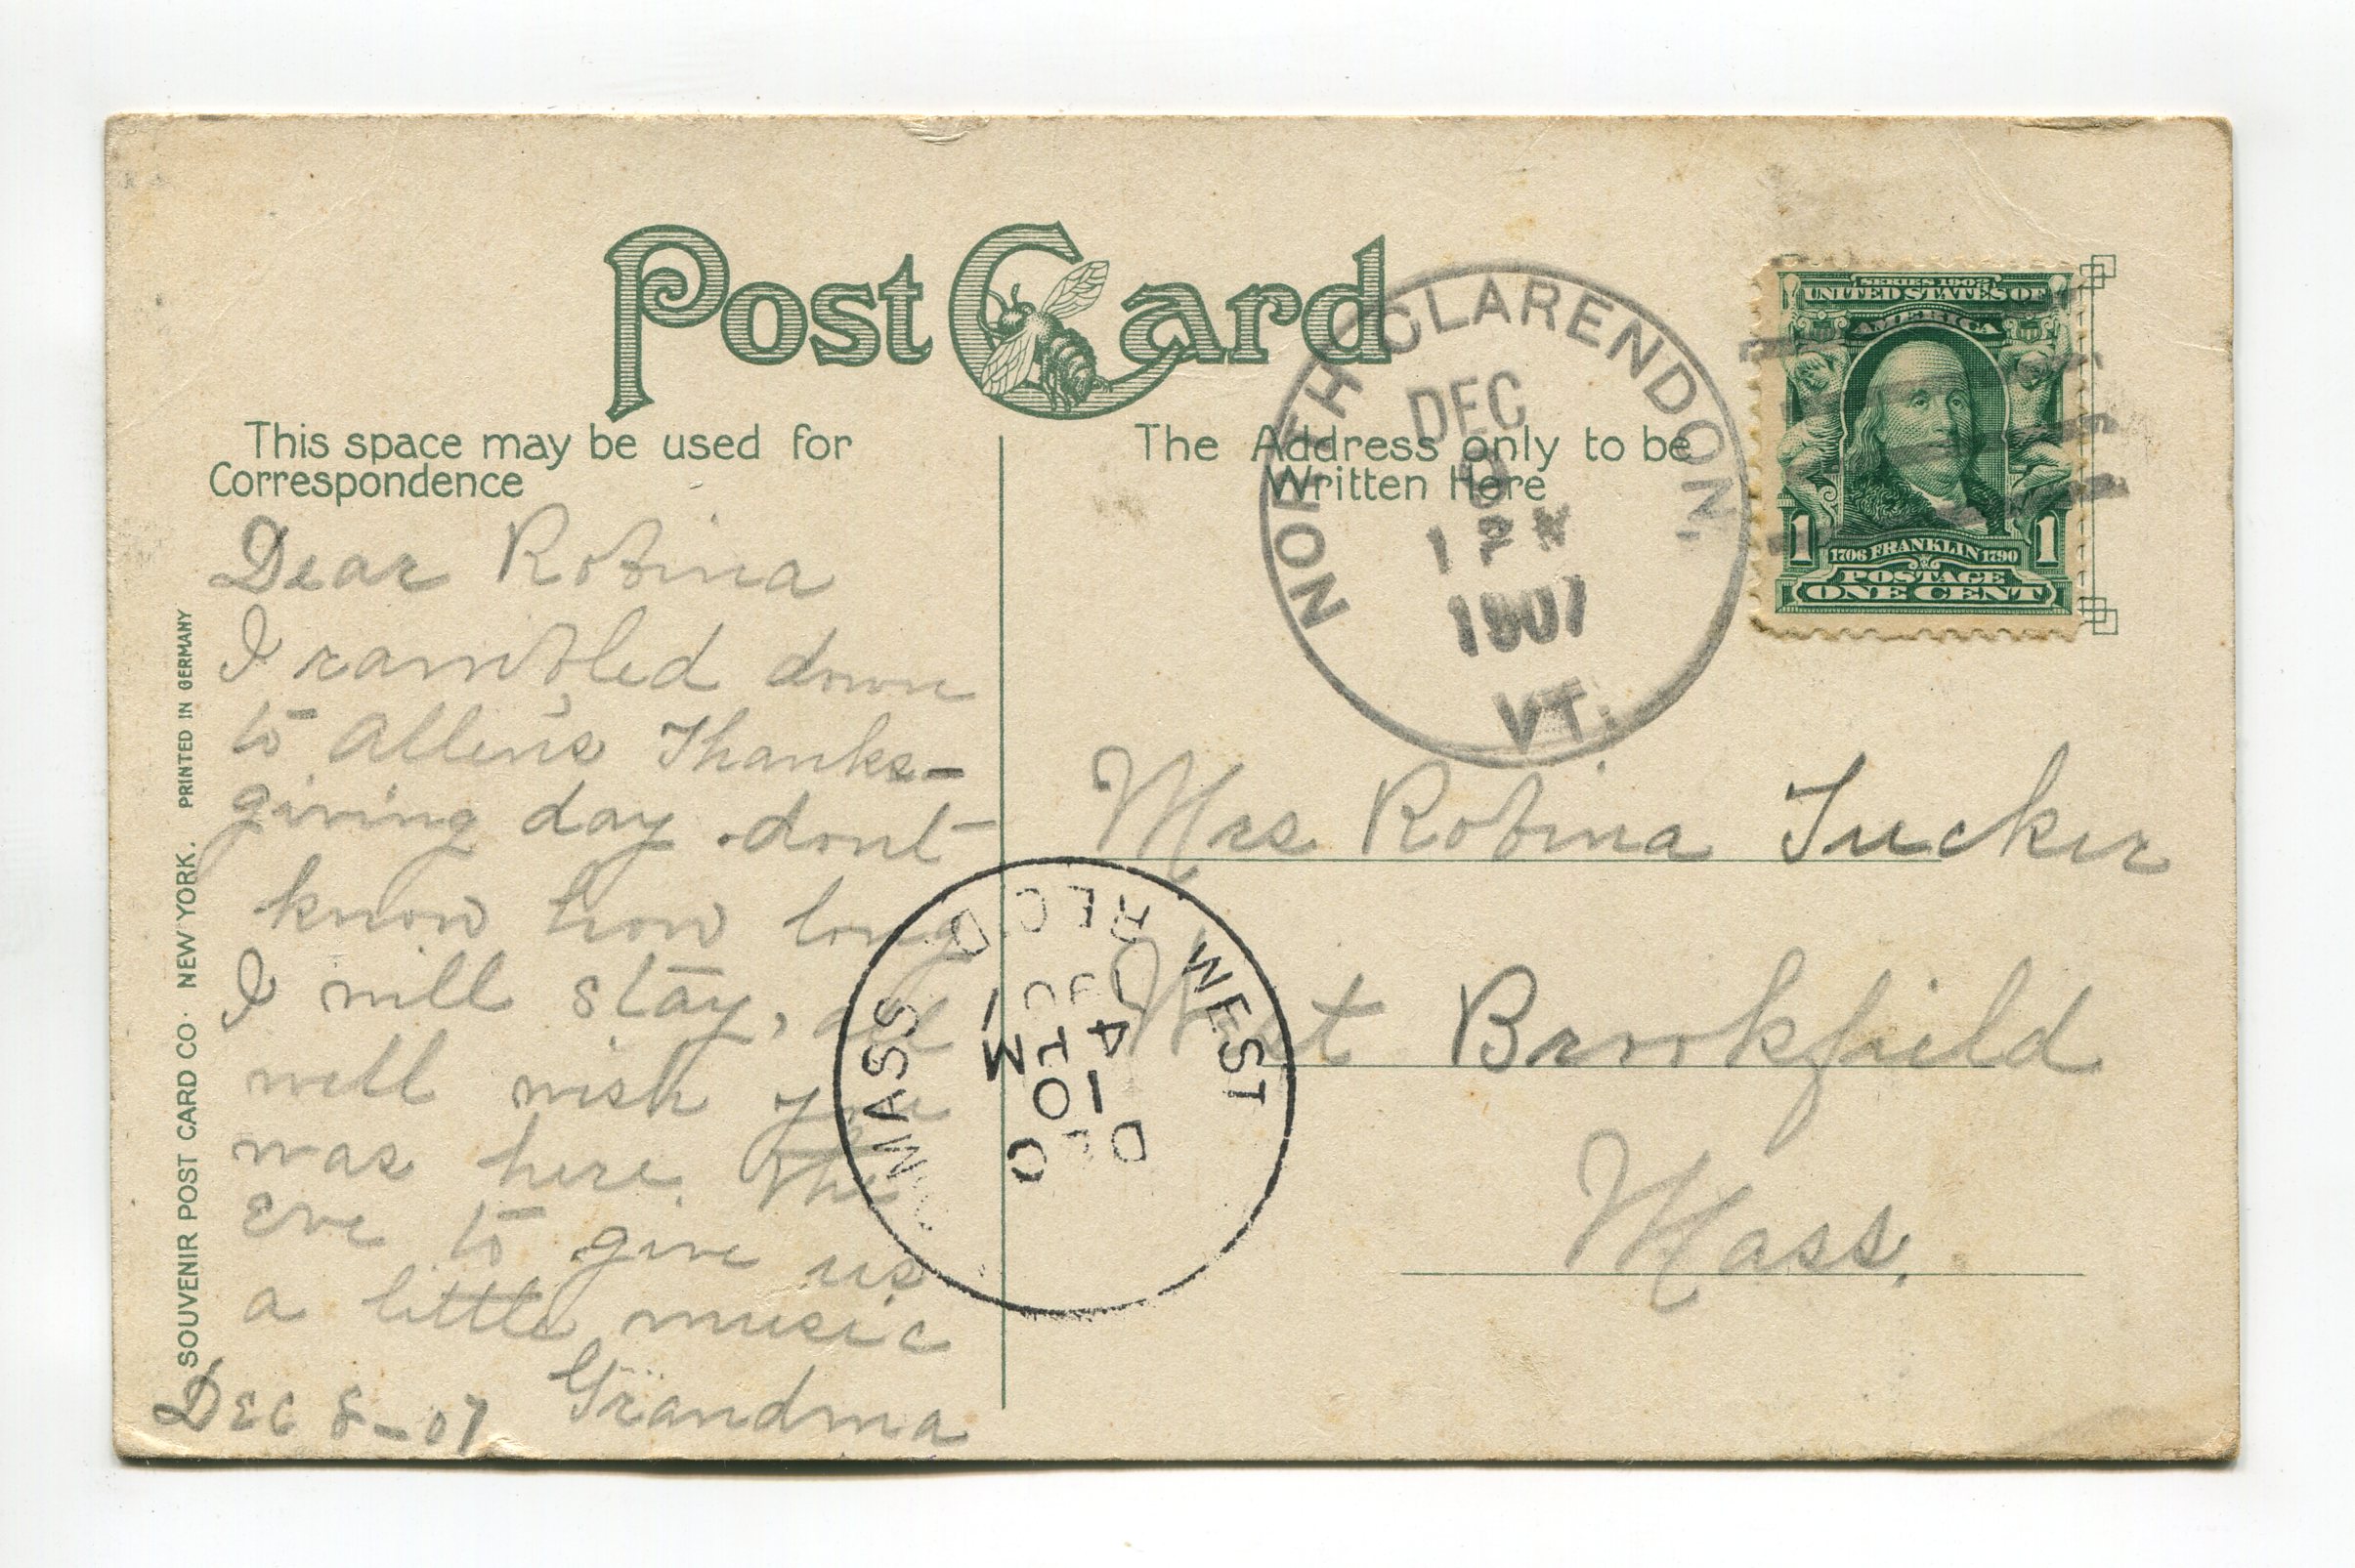 Post Card
This space may be used for
Correspondence
The Address only to be
Written Here
NORTH CLARENDON,
DEC
9
1 P M
1907
VT.
SERIES 1902
UNITED STATES OF
AMERICA
1 1706 FRANKLIN 1790 1
POSTAGE
ONE CENT
Dear Robina
I rambled down
to Allen's Thanks-
giving day . dont
know how long
I will stay, all
well wish you
was here. the
Eve to give us
a little music
Grandma
Dec 8-07
Mrs Robina Tucker
West Brookfield
Mass.
REC'D
WEST
MASS
DEC
SOUVENIR POST CARD CO. NEW YORK. PRINTED IN GERMANY